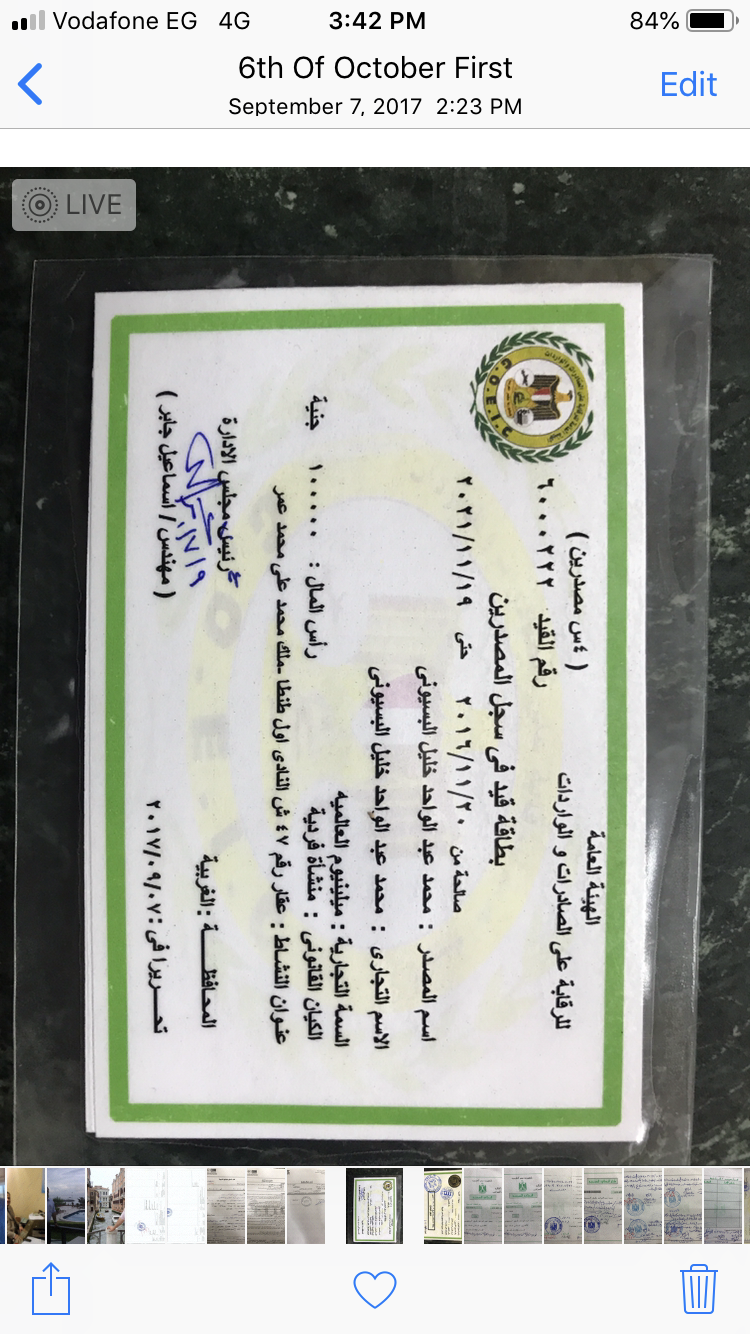 Vodafone EG 4G 3:42 PM 84%
6th Of October First
September 7, 2017 2:23 PM
Edit
LIVE
الهيئة العامة
للرقابة على الصادرات و الواردات
G.O.E.I.C
( ٤س مصدرين )
رقم القيد ٦٠٠٠٢٢٢
بطاقة قيد فى سجل المصدرين
صالحة من ٢٠١٦/١١/٢٠ حتى ٢٠٢١/١١/١٩
اسم المصدر : محمد عبد الواحد خليل البسيونى
الاسم التجارى : محمد عبد الواحد خليل البسيونى
السمة التجارية : ميلينيوم العالميه
الكيان القانونى : منشأة فردية رأس المال : ١٠٠٠٠٠ جنية
عنوان النشاط : عقار رقم ٤٧ ش النادى اول طنطا -ملك محمد على محمد عمر
المحافظة : الغربية
رئيس مجلس الادارة
تحريرا فى : ٢٠١٧/٠٩/٠٧
( مهندس / اسماعيل جابر )